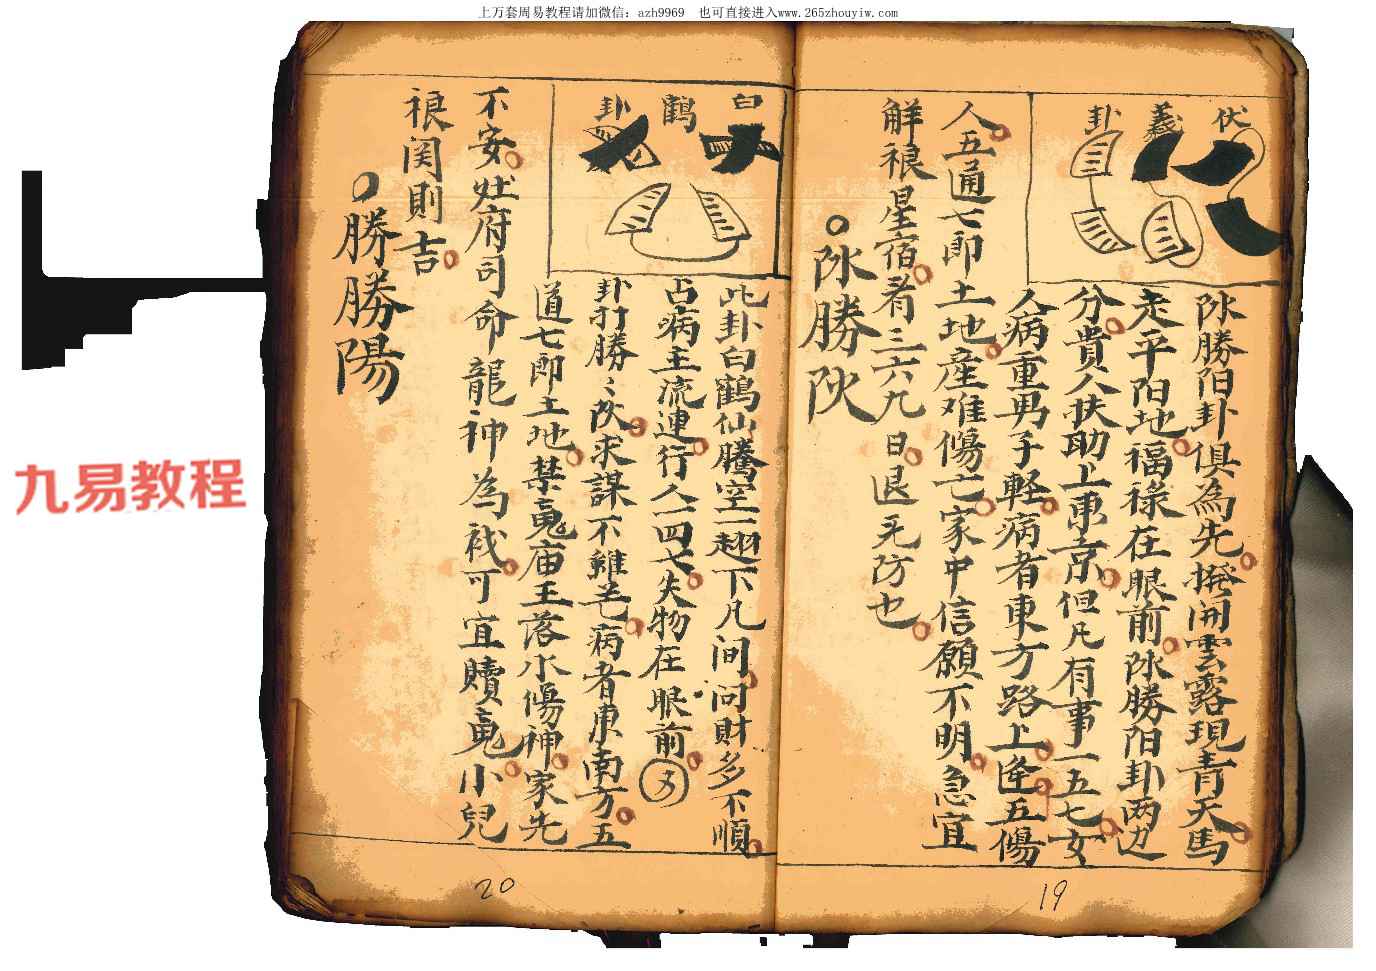 上万套周易教程请加微信：azh9969　也可直接进入www.265zhouyiw.com
伏義卦
勝阳卦俱為先撥開雲露現青天馬
走平阳地福禄在眼前勝阳卦两边
分貴人扶助上東京但凡有事一五七女
人病重男子軽病者東方路上五傷
人五通七郎土地産难傷亡家中信愿不明急宜
解星宿看三六九日退无防也
勝
白鶴卦
此卦白鶴仙騰空一翅下凡问问財多不順
占病主流連行人一四七失物在眼前
卦打勝〻求謀不雞毛病者東南方五
道七郎土地禁庙王落水傷神家先
不安灶府司命龍神為可宜贖小兒
関則吉
勝勝陽
九易教程
20
19